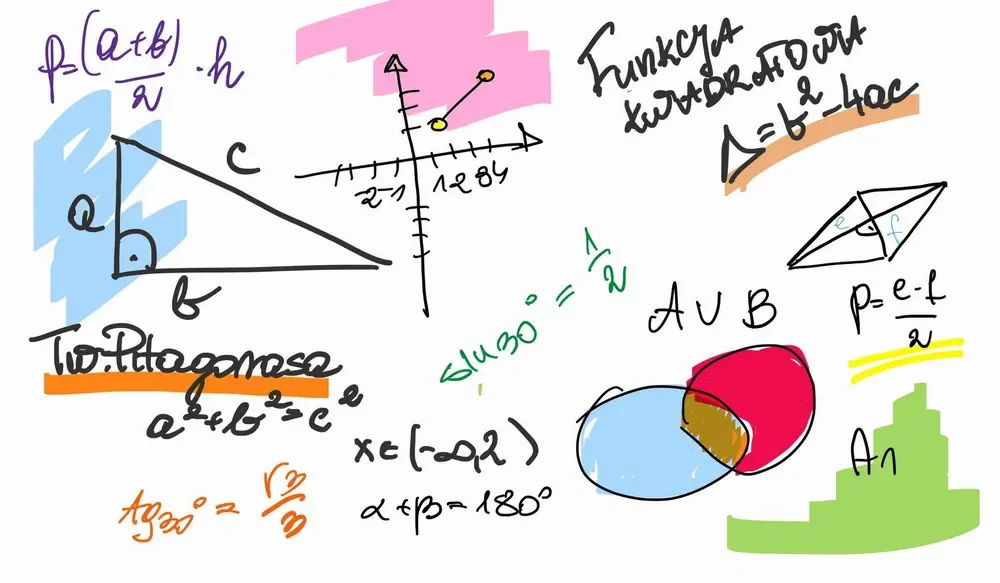 P=(a+b)/2 · h
Funkcja
kwadratowa
Δ=b²-4ac
c
a
b
2-1 1234
e f
sin30°=1/2
A∪B
P=e·f/2
Tw. Pitagorasa
a²+b²=c²
x∈(-∞,2)
An
tg30°=√3/3
α+β=180°